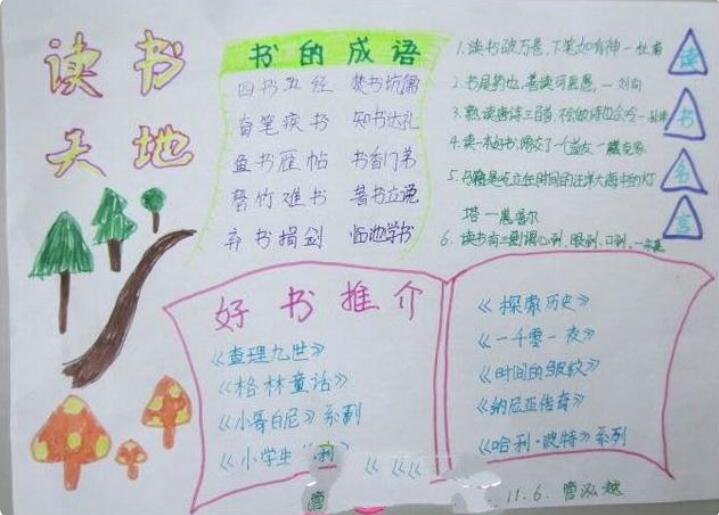 读书
天地
书的成语
四书五经 焚书坑儒
奋笔疾书 知书达礼
鱼书雁帖 书香门第
罄竹难书 著书立说
弃书捐剑 临池学书
1. 读书破万卷、下笔如有神一杜甫
2. 书犹药也、善读可医愚、一刘向
3. 熟读唐诗三百首、不会做诗也会吟一
4. 读一本好书,一个益友一臧克家
5. 书籍是屹立在时间的汪洋大海中的灯
塔一惠普尔
6. 读书有三到谓心到、眼到、口到、一朱熹
读
书
名
言
好书推介
《查理九世》
《格林童话》
《小哥白尼》系列
《小学生“
《探索历史》
《一千零一夜》
《时间的皱纹》
《纳尼亚传奇》
《哈利·波特》系列
曾
11.6. 曾泓越